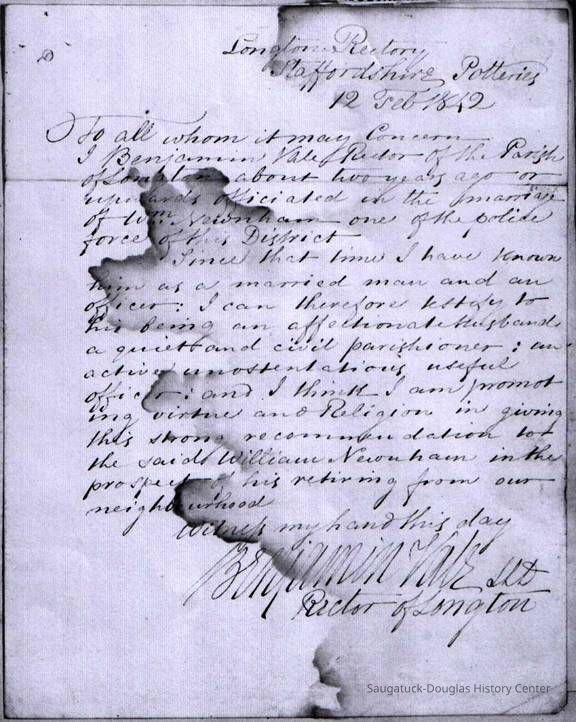 Longton Rectory
Staffordshire Potteries
12 Feb 1842
To all whom it may Concern
I Benjamin Vale Rector of the Parish
of Longton about two years ago or
upwards officiated in the marriage
of Wm. Newnham one of the police
force of this District
Since that time I have known
him as a married man and an
officer: I can therefore testify to
his being an affectionate Husband
a quiet and civil parishioner: an
active unostentatious useful
officer: and I think I am promot
ing virtue and Religion in giving
this strong recommendation to
the said William Newnham in the
prospect of his retiring from our
neighbourhood
Witness my hand this day
Benjamin Vale LLD
Rector of Longton
Saugatuck-Douglas History Center